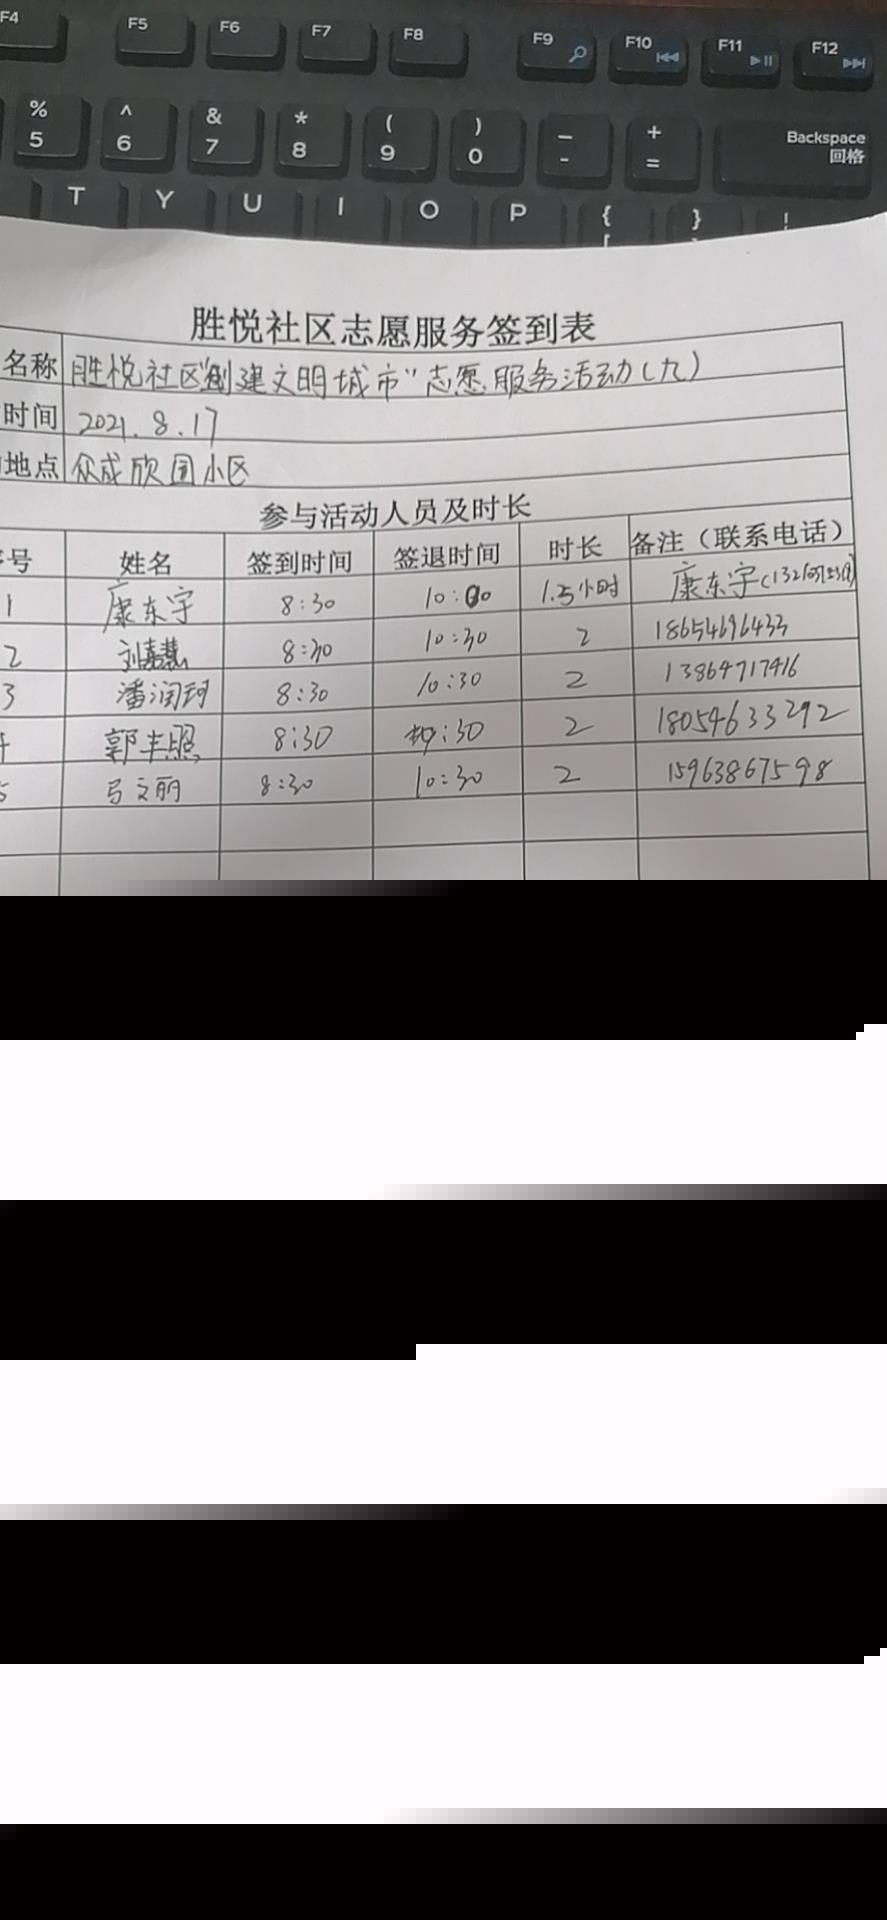 F4 F5 F6 F7 F8 F9 F10 F11 F12
% ^ & * ( ) _ +
5 6 7 8 9 0 - = Backspace 回格
T Y U I O P { } !
胜悦社区志愿服务签到表
名称 胜悦社区"创建文明城市"志愿服务活动(九)
时间 2021.8.17
地点 众成欣园小区
参与活动人员及时长
号 姓名 签到时间 签退时间 时长 备注(联系电话)
1 康东宇 8:30 10:00 1.5小时 康东宇
2 刘嘉慧 8:30 10:30 2 18654696433
3 潘润珂 8:30 10:30 2 13864717416
郭丰照 8:30 :30 2 18054633292
5 弓文丽 8:30 10:30 2 15963867598